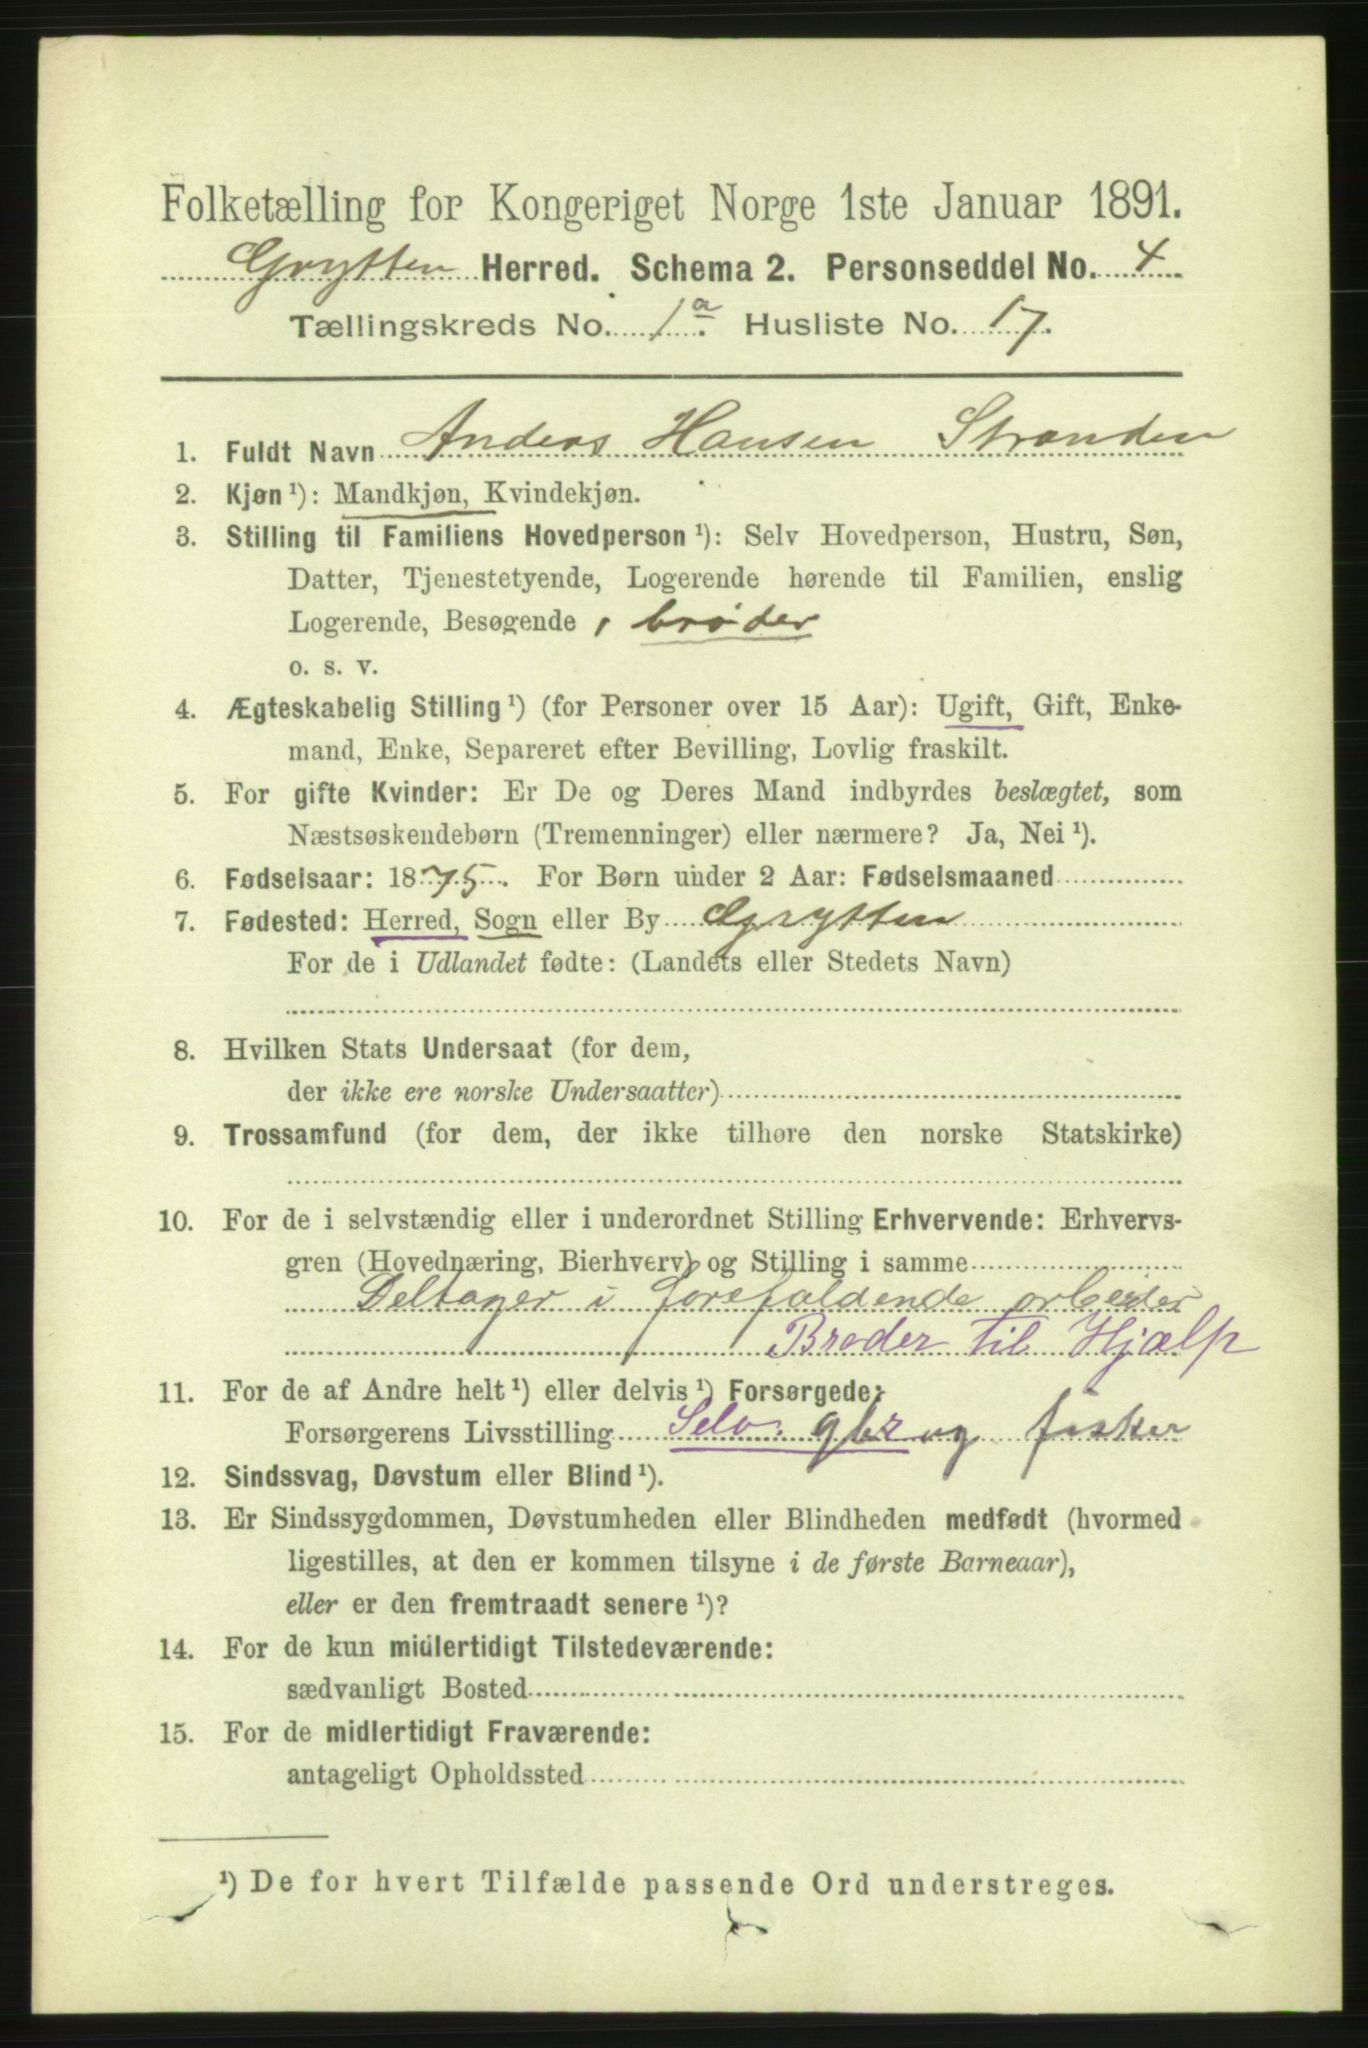 Folketælling for Kongeriget Norge 1ste Januar 1891.
Grytten Herred. Schema 2. Personseddel No. 4
Tællingskreds No. 1a. Husliste No. 17.
1. Fuldt Navn Anders Hansen Stranden
2. Kjøn ¹): Mandkjøn, Kvindekjøn.
3. Stilling til Familiens Hovedperson ¹): Selv Hovedperson, Hustru, Søn,
Datter, Tjenestetyende, Logerende hørende til Familien, enslig
Logerende, Besøgende, brøder
o. s. v.
4. Ægteskabelig Stilling ¹) (for Personer over 15 Aar): Ugift, Gift, Enke-
mand, Enke, Separeret efter Bevilling, Lovlig fraskilt.
5. For gifte Kvinder: Er De og Deres Mand indbyrdes beslægtet, som
Næstsøskendebørn (Tremenninger) eller nærmere? Ja, Nei ¹).
6. Fødselsaar: 1875. For Børn under 2 Aar: Fødselsmaaned
7. Fødested: Herred, Sogn eller By Grytten
For de i Udlandet fødte: (Landets eller Stedets Navn)
8. Hvilken Stats Undersaat (for dem,
der ikke ere norske Undersaatter)
9. Trossamfund (for dem, der ikke tilhøre den norske Statskirke)
10. For de i selvstændig eller i underordnet Stilling Erhvervende: Erhvervs-
gren (Hovednæring, Bierhverv) og Stilling i samme
Deltager i forefaldende arbeider
Broder til Hjælp
11. For de af Andre helt ¹) eller delvis ¹) Forsørgede:
Forsørgerens Livsstilling Selv. gbr og fisker
12. Sindssvag, Døvstum eller Blind ¹).
13. Er Sindssygdommen, Døvstumheden eller Blindheden medfødt (hvormed
ligestilles, at den er kommen tilsyne i de første Barneaar),
eller er den fremtraadt senere ¹)?
14. For de kun midlertidigt Tilstedeværende:
sædvanligt Bosted
15. For de midlertidigt Fraværende:
antageligt Opholdssted
¹) De for hvert Tilfælde passende Ord understreges.